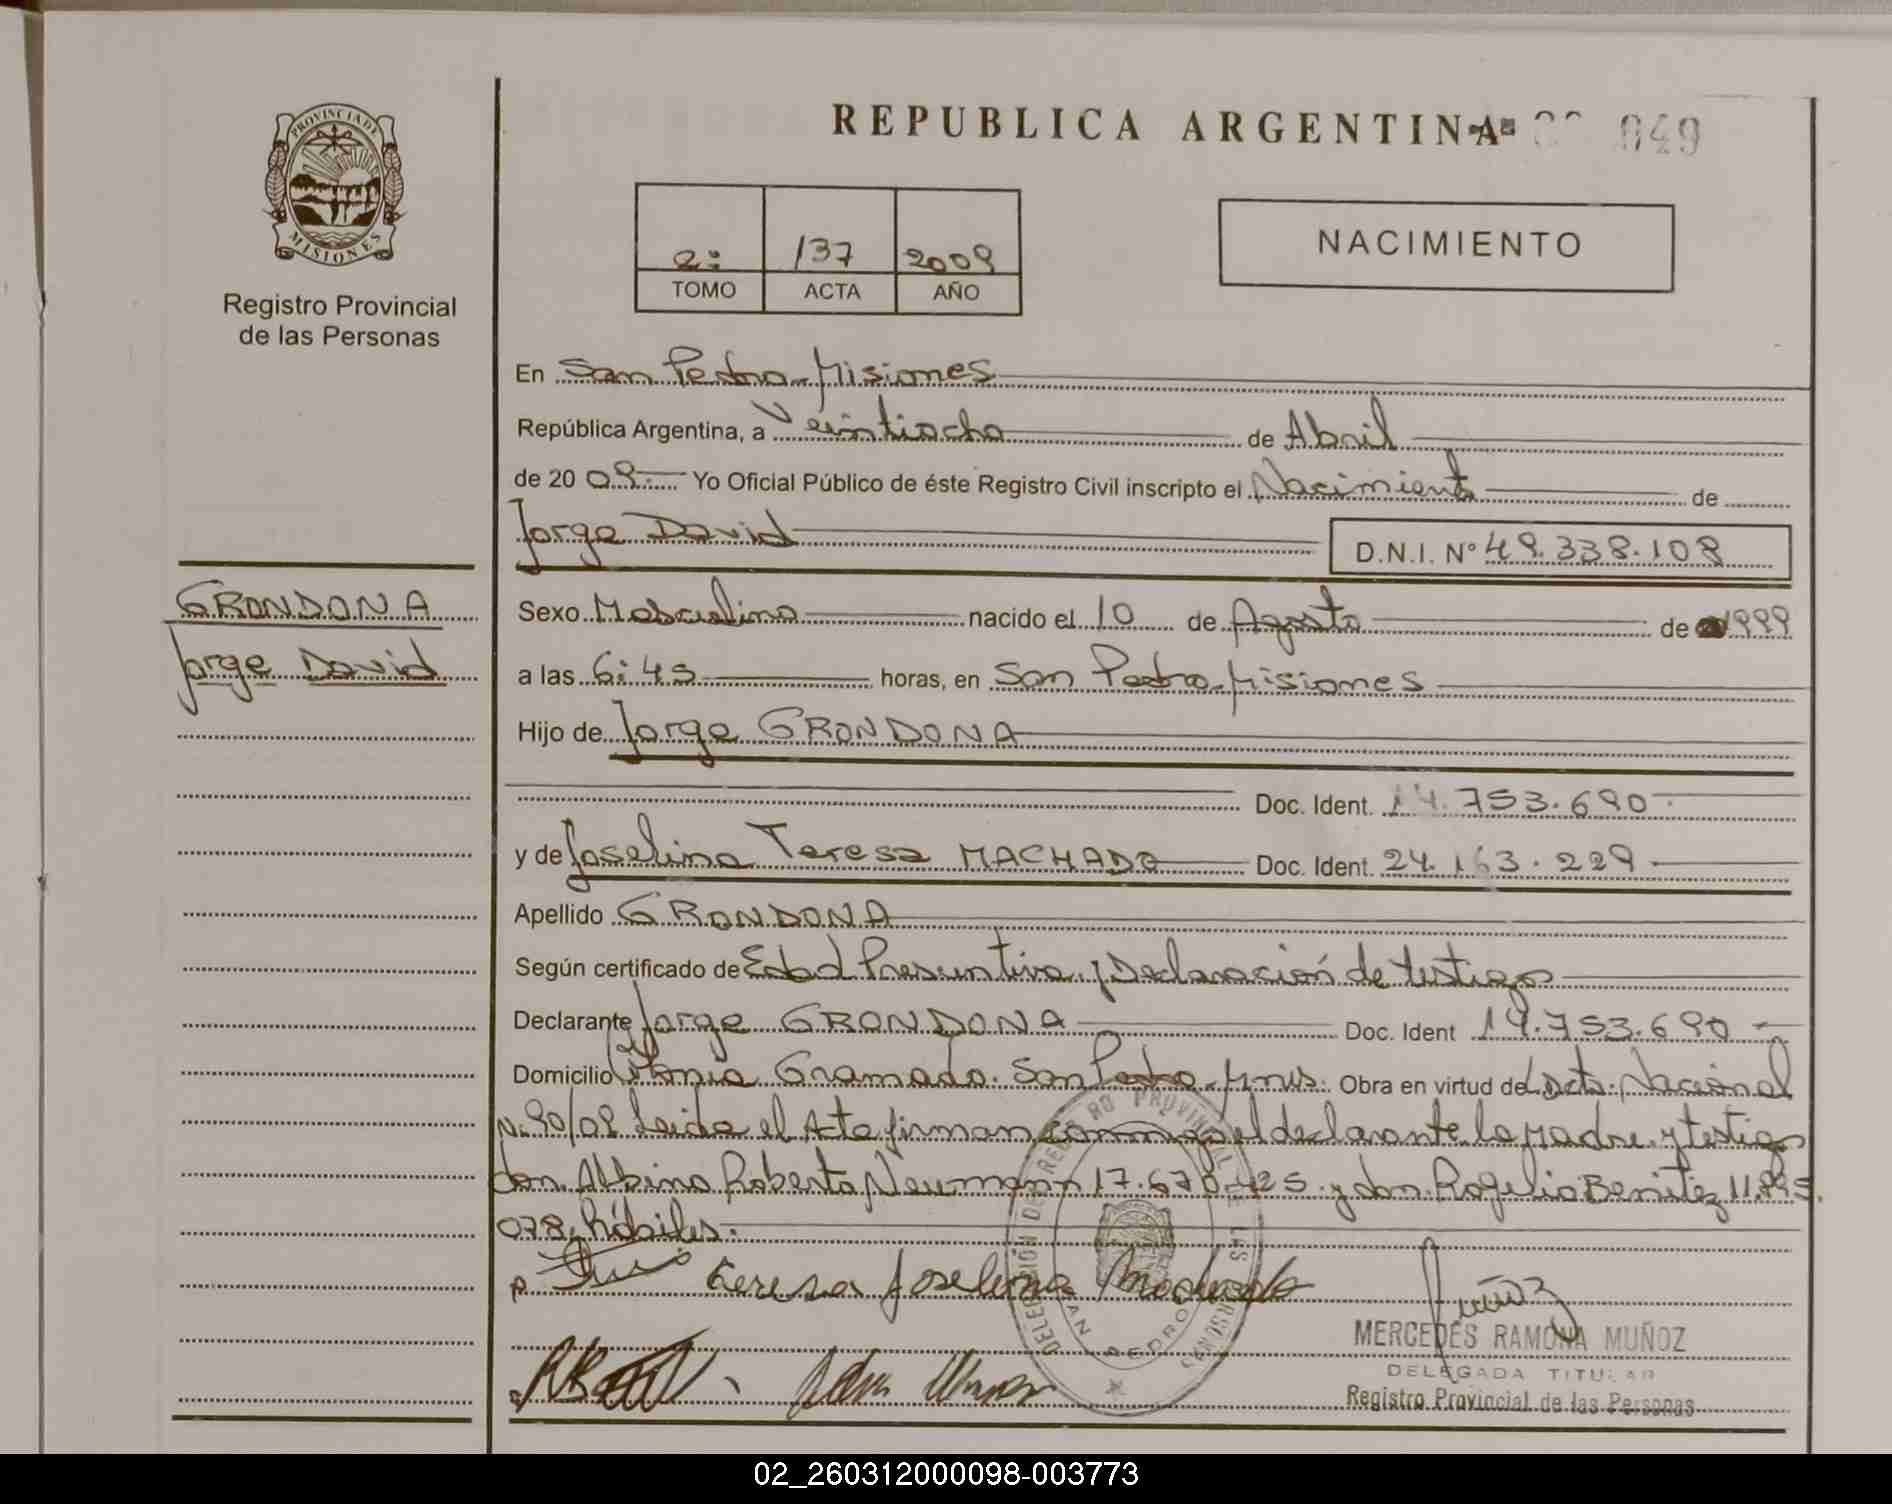 PROVINCIA DE
MISIONES
Registro Provincial
de las Personas
REPUBLICA ARGENTINA
049
2: 137 2009
TOMO ACTA AÑO
NACIMIENTO
En San Pedro - Misiones
República Argentina, a Veintiocho de Abril
de 20 09.- Yo Oficial Público de éste Registro Civil inscripto el Nacimiento de
Jorge David D.N.I. Nº 49.338.108
GRONDONA
Jorge David
Sexo Masculino nacido el 10 de Agosto de 1999
a las 6:45 horas, en San Pedro - Misiones
Hijo de Jorge GRONDONA
Doc. Ident. 14.753.690
y de Joselina Teresa MACHADO Doc. Ident. 24.163.229
Apellido GRONDONA
Según certificado de Edad Presuntiva y Declaración de testigo
Declarante Jorge GRONDONA Doc. Ident 14.753.690
Domicilio Colonia Gramado. San Pedro - Mnes. Obra en virtud de Dcto. Nacional
N. 90/09 Leida el Acta firman conmigo el declarante la Madre y testigo
don Albino Roberto Neumann 17.670.425 y don Rogelio Benitez 11.895.
078, hábiles.-
Teresa Joselina Machado
MERCEDES RAMONA MUÑOZ
DELEGADA TITULAR
Registro Provincial de las Personas
DELEGACIÓN DEL REGISTRO PROVINCIAL DE LAS PERSONAS
SAN PEDRO
02_260312000098-003773